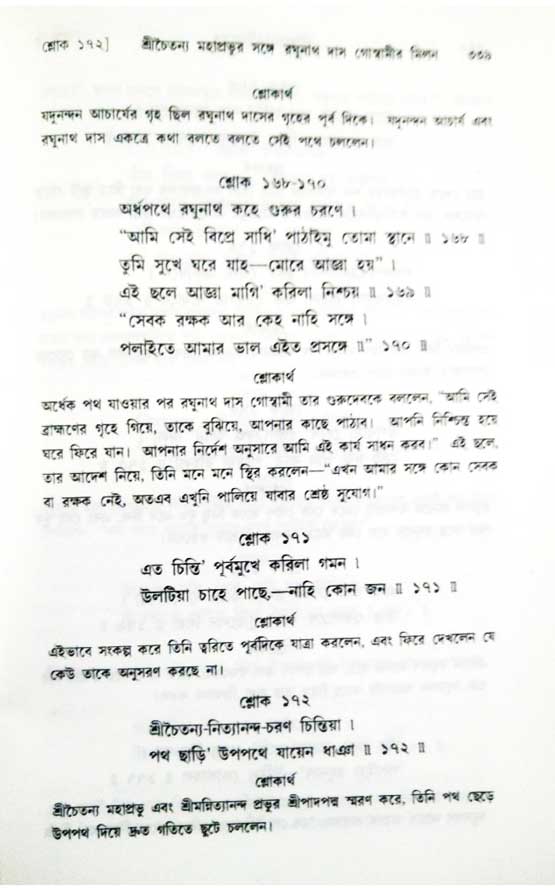 [শ্লোক ১৭২] শ্রীচৈতন্য মহাপ্রভুর সঙ্গে রঘুনাথ দাস গোস্বামীর মিলন ৩৩৯
শ্লোকার্থ
যদুনন্দন আচার্যের গৃহ ছিল রঘুনাথ দাসের গৃহের পূর্ব দিকে। যদুনন্দন আচার্য এবং
রঘুনাথ দাস একত্রে কথা বলতে বলতে সেই পথে চললেন।
শ্লোক ১৬৮-১৭০
অর্ধপথে রঘুনাথ কহে গুরুর চরণে ।
“আমি সেই বিপ্রে সাধি’ পাঠাইমু তোমা স্থানে ॥ ১৬৮ ॥
তুমি সুখে ঘরে যাহ—মোরে আজ্ঞা হয়” ।
এই ছলে আজ্ঞা মাগি’ করিলা নিশ্চয় ॥ ১৬৯ ॥
“সেবক রক্ষক আর কেহ নাহি সঙ্গে ।
পলাইতে আমার ভাল এইত প্রসঙ্গে ॥” ১৭০ ॥
শ্লোকার্থ
অর্ধেক পথ যাওয়ার পর রঘুনাথ দাস গোস্বামী তার গুরুদেবকে বললেন, “আমি সেই
ব্রাহ্মণের গৃহে গিয়ে, তাকে বুঝিয়ে, আপনার কাছে পাঠাব। আপনি নিশ্চিন্ত হয়ে
ঘরে ফিরে যান। আপনার নির্দেশ অনুসারে আমি এই কার্য সাধন করব।” এই ছলে,
তার আদেশ নিয়ে, তিনি মনে মনে স্থির করলেন—“এখন আমার সঙ্গে কোন সেবক
বা রক্ষক নেই, অতএব এখুনি পালিয়ে যাবার শ্রেষ্ঠ সুযোগ।”
শ্লোক ১৭১
এত চিন্তি’ পূর্বমুখে করিলা গমন ।
উলটিয়া চাহে পাছে,—নাহি কোন জন ॥ ১৭১ ॥
শ্লোকার্থ
এইভাবে সংকল্প করে তিনি ত্বরিতে পূর্বদিকে যাত্রা করলেন, এবং ফিরে দেখলেন যে
কেউ তাকে অনুসরণ করছে না।
শ্লোক ১৭২
শ্রীচৈতন্য-নিত্যানন্দ-চরণ চিন্তিয়া ।
পথ ছাড়ি’ উপপথে যায়েন ধাঞা ॥ ১৭২ ॥
শ্লোকার্থ
শ্রীচৈতন্য মহাপ্রভু এবং শ্রীমন্নিত্যানন্দ প্রভুর শ্রীপাদপদ্ম স্মরণ করে, তিনি পথ ছেড়ে
উপপথ দিয়ে দ্রুত গতিতে ছুটে চললেন।